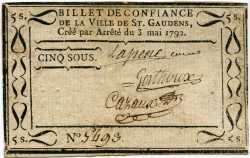 BILLET DE CONFIANCE
5 s. DE LA VILLE DE ST. GAUDENS, 5 s.
Créé par Arrêté du 3 mai 1792.
CINQ SOUS.
Lapene
Cazaux
5 s. N.° 5493. 5 s.